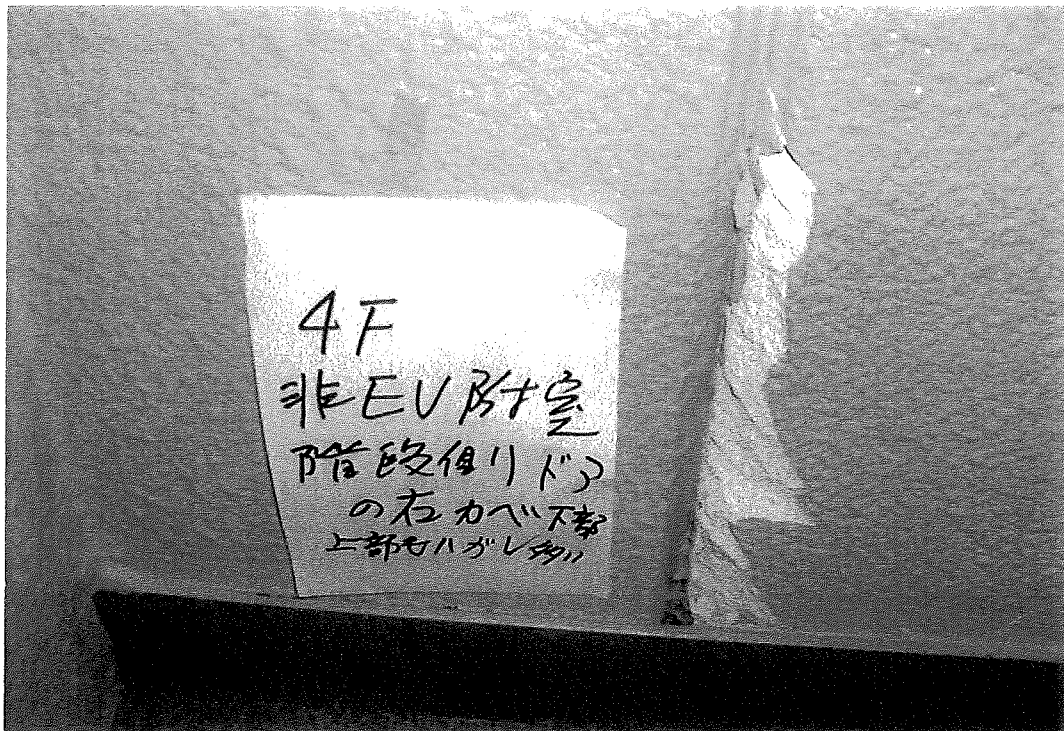 4F
非EV附室
階段側ドア
の右カベ下部
上部もハガレ多い